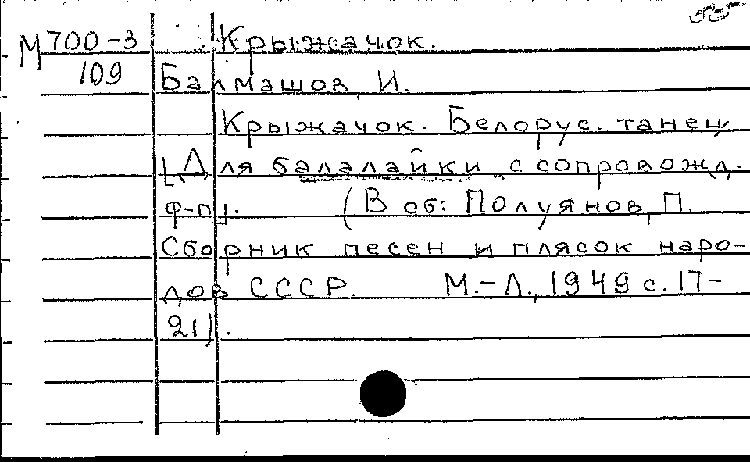 М 700-3 Крыжачок.
109 Балмашов, И.
Крыжачок. Белорус. танец
[Для балалайки с сопровожд.
ф-п]. (В сб: Полуянов, П.
Сборник песен и плясок наро-
дов СССР. М.-Л., 1949 с. 17-
21).